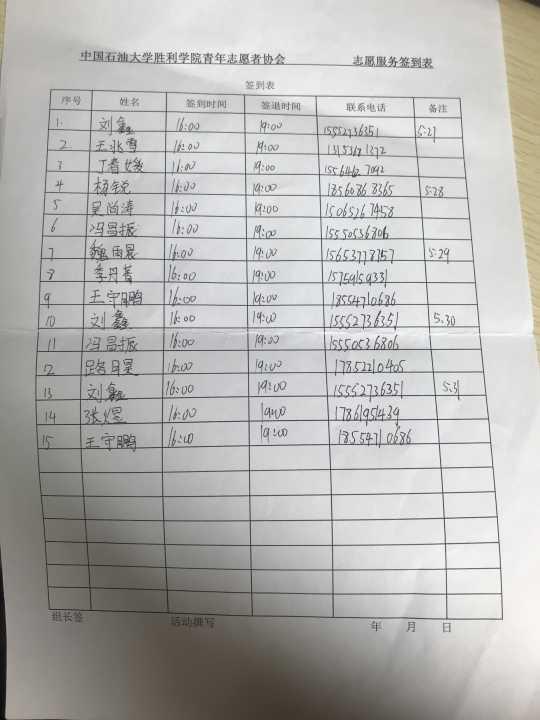 中国石油大学胜利学院青年志愿者协会 志愿服务签到表
签到表
序号 姓名 签到时间 签退时间 联系电话 备注
1. 刘鑫 16:00 19:00 15552736351 5.27
2 王兆雪 16:00 19:00
3 丁春媛 16:00 19:00 15564627092
4 杨锐 16:00 19:00 18560868365 5.28
5 吴尚涛 16:00 19:00 15065267458
6 冯昌振 16:00 19:00 15550536806
7 魏雨晨 16:00 19:00 15653778757 5.29
8 李丹 16:00 19:00 15759159331
9 王守鹏 16:00 19:00 18554710686
10 刘鑫 16:00 19:00 15552736351 5.30
11 冯昌振 16:00 19:00 15550536806
12 16:00 19:00 17852210405
13 刘鑫 16:00 19:00 15552736351 5.31
14 张煜 16:00 19:00 17861951439
15 王守鹏 16:00 19:00 18554710686
组长签 活动撰写 年 月 日